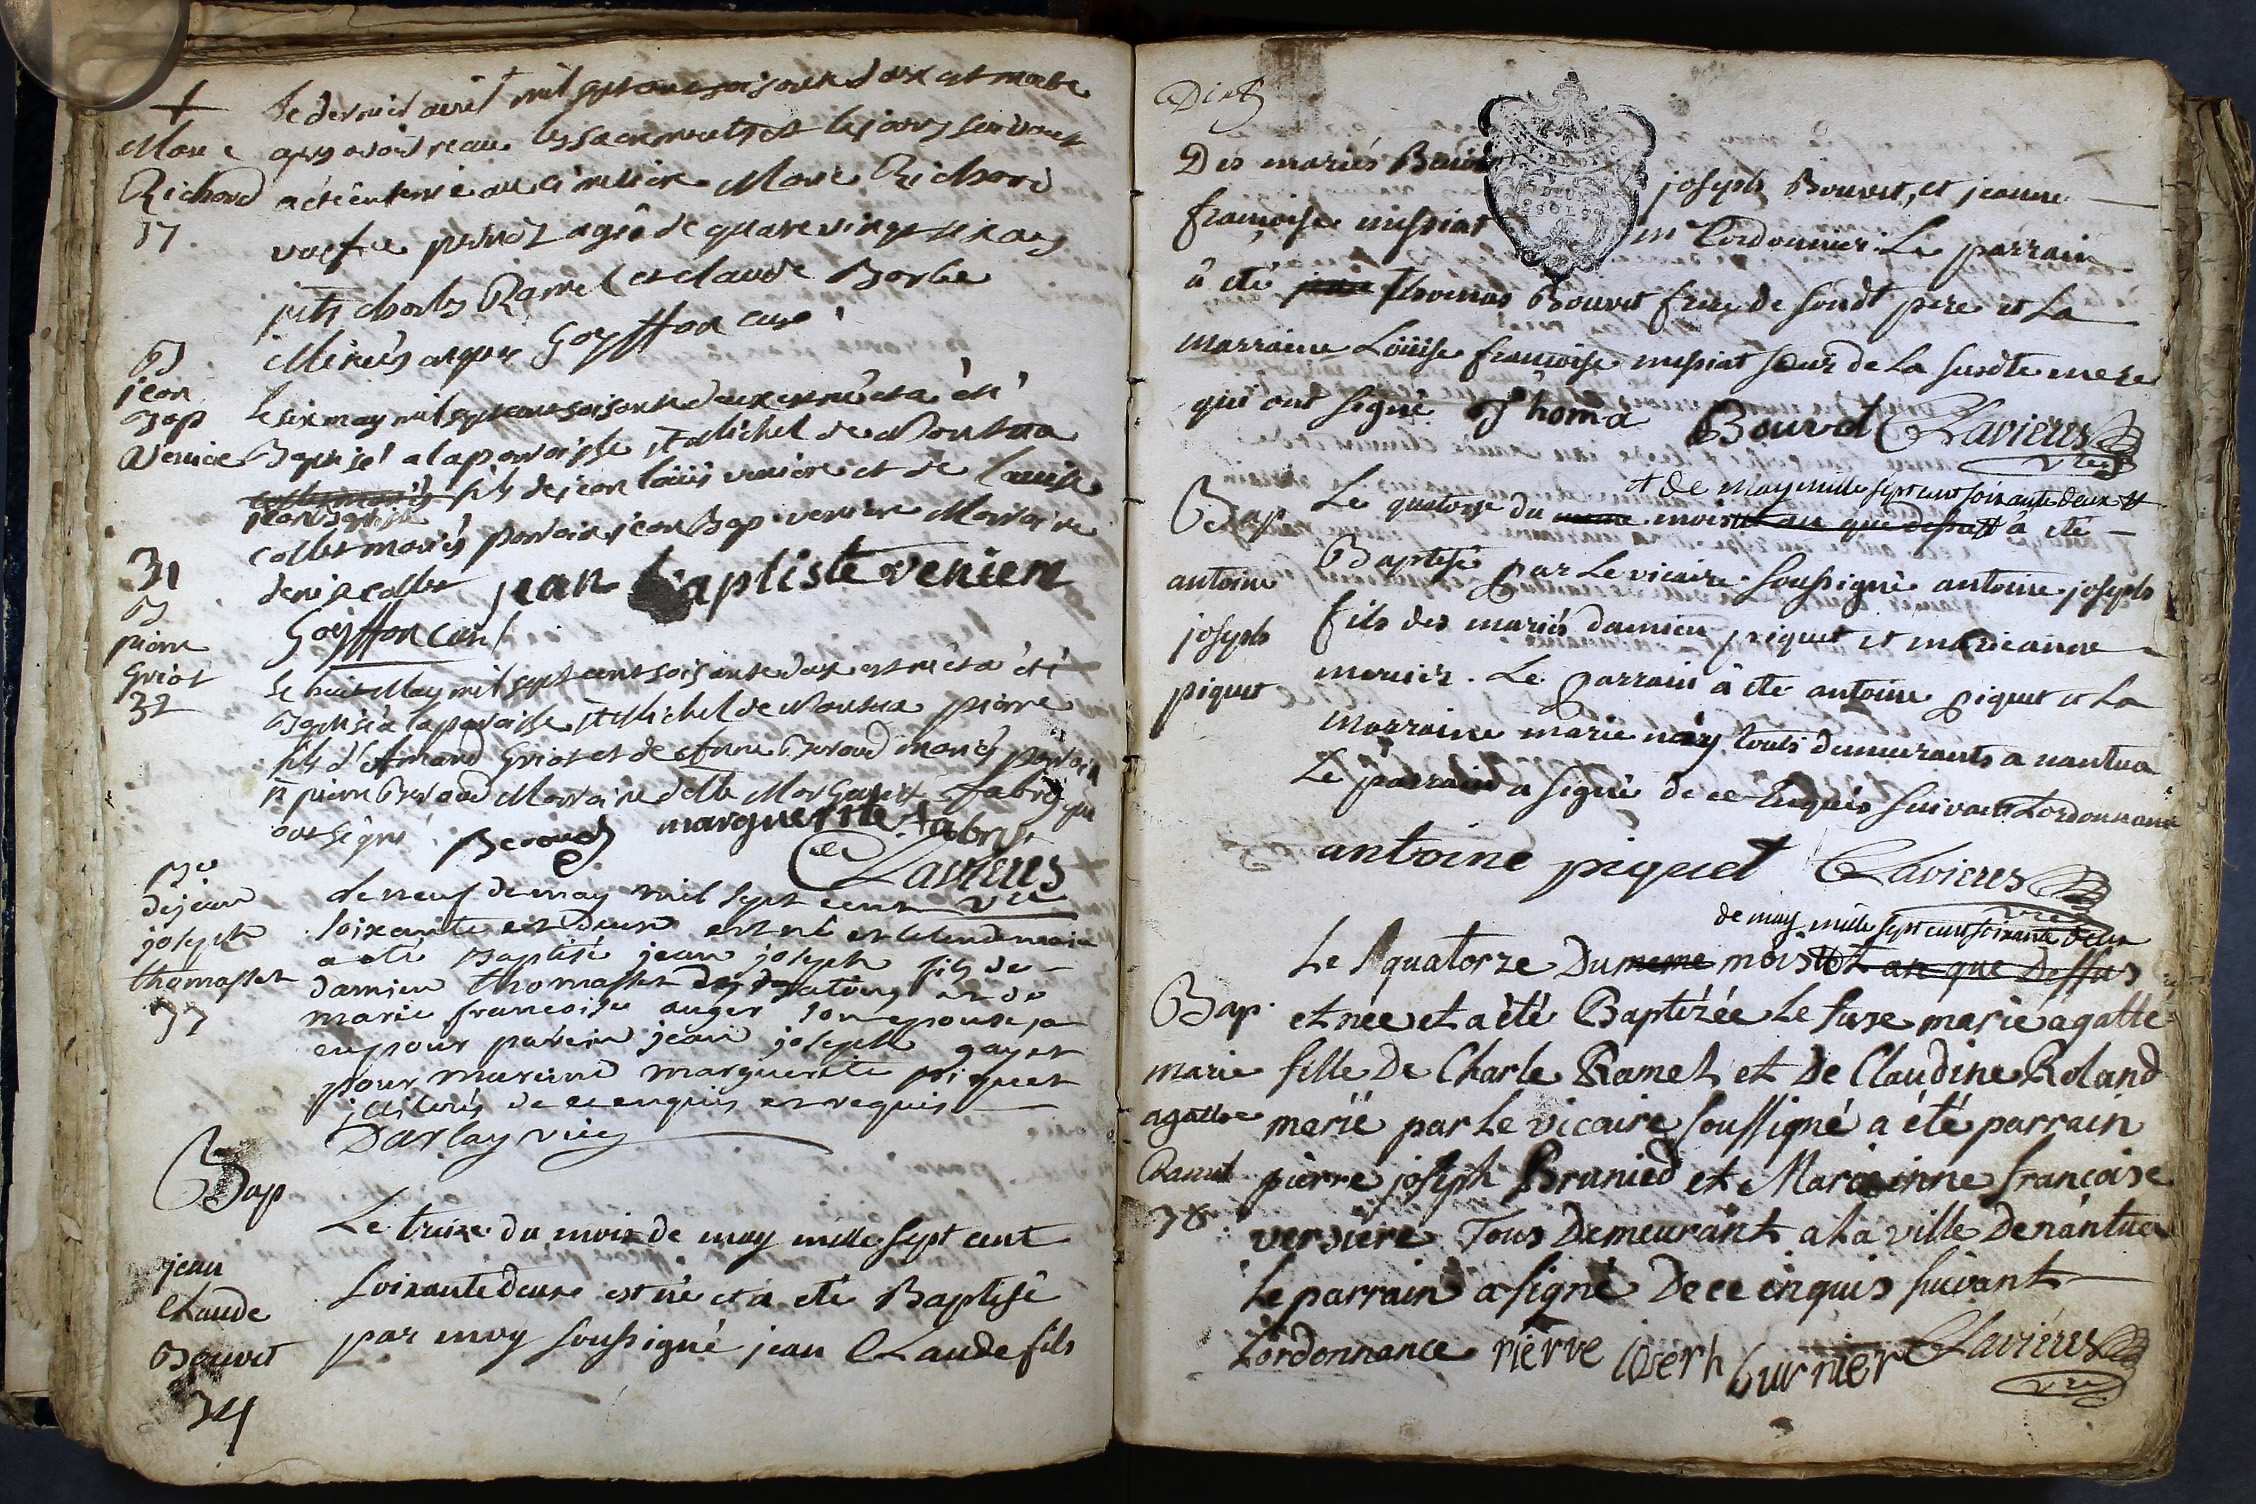 +
Marie
Richard
17
Le dernier avril mil sept cent soisante deux est morte
apres avoir receu les sacrements et le jour suivant
a été enterrée au cimetiere Marie Richard
agée de quatre vingt six ans
pnts charles Ramel et claude Borbe
illiterés enquis Goyffon curé
B
jean
Bap
Veniere
31
Le six may mil sept cent soisante deux est né et a été
Baptisé a la paroisse St Michel de Nantua
jean baptiste
fils de jean loüis veniere et de louise
collet mariés parrain jean Bap veniere Marraine
denise collet jean baptiste veniere
Goyffon curé
B
pierre
Griot
32
le huit May mil sept cent soisante deux est né et a été
Baptisé a la paroisse St Michel de Nantua pierre
fils d'Amand Griot et de Anne Beroud mariés parrain
Sr pierre Beroud Marraine delle Marguerite Fabry qui
ont signé Beroud marguerite fabry
Clavieres
vre
Be
de jean
joseph
thomasset
33
Le neuf de may mil sept cent
soixante et deux est né et le lendemain
a été Baptisé jean joseph fils de
damien thomasset et de
marie francoise auger son epouse, a
eu pour parein jean joseph gayet
pour mareine marguerite piquet
illiterés de ce enquis et requis
Darlay vic
Bap
jean
Claude
Bouvet
34
Le treize du mois de may mille sept cent
soixante deux est né et a eté Baptisé
par moy soussigné jean Claude fils
Des mariés joseph Bouvet, et jeanne
françoise missiat mre Cordonnier. Le parrain
â eté Thomas Bouvet frere de sondt pere et La
marraine Loüise françoise missiat sœur de La susdte mere
qui ont signé Thoma Bouvet Clavieres
vre
Bap
antoine
joseph
piquet
+ de may mille sept cent soixante deux #
Le quatorze du meme mois et an que dessus # â eté
Baptisé par Le vicaire soussigné antoine joseph
fils des mariés damien piquet et marieanne
mercier. Le parrain â eté antoine piquet et La
marraine marie touts demeurants a nantua
Le parrain a signé de ce Enquis suivant Lordonnance
antoine piquet Clavieres
vre
de may mille sept cent soixante deux
Le quatorze Du meme mois et an que Dessus
Bap
marie
agatte
Ramel
36
et née et a été Baptizée Le susre marie agatte
fille De Charle Ramel et De Claudine Roland
merié par Le vicaire soussigné a été parrain
pierre joseph Brunied et Marieinne françoise
versiere Tous Demeurant a La ville De nantua
Le parrain a signé De ce enquis suivant
Lordonnance pierre ioserh burnier Clavieres
vre